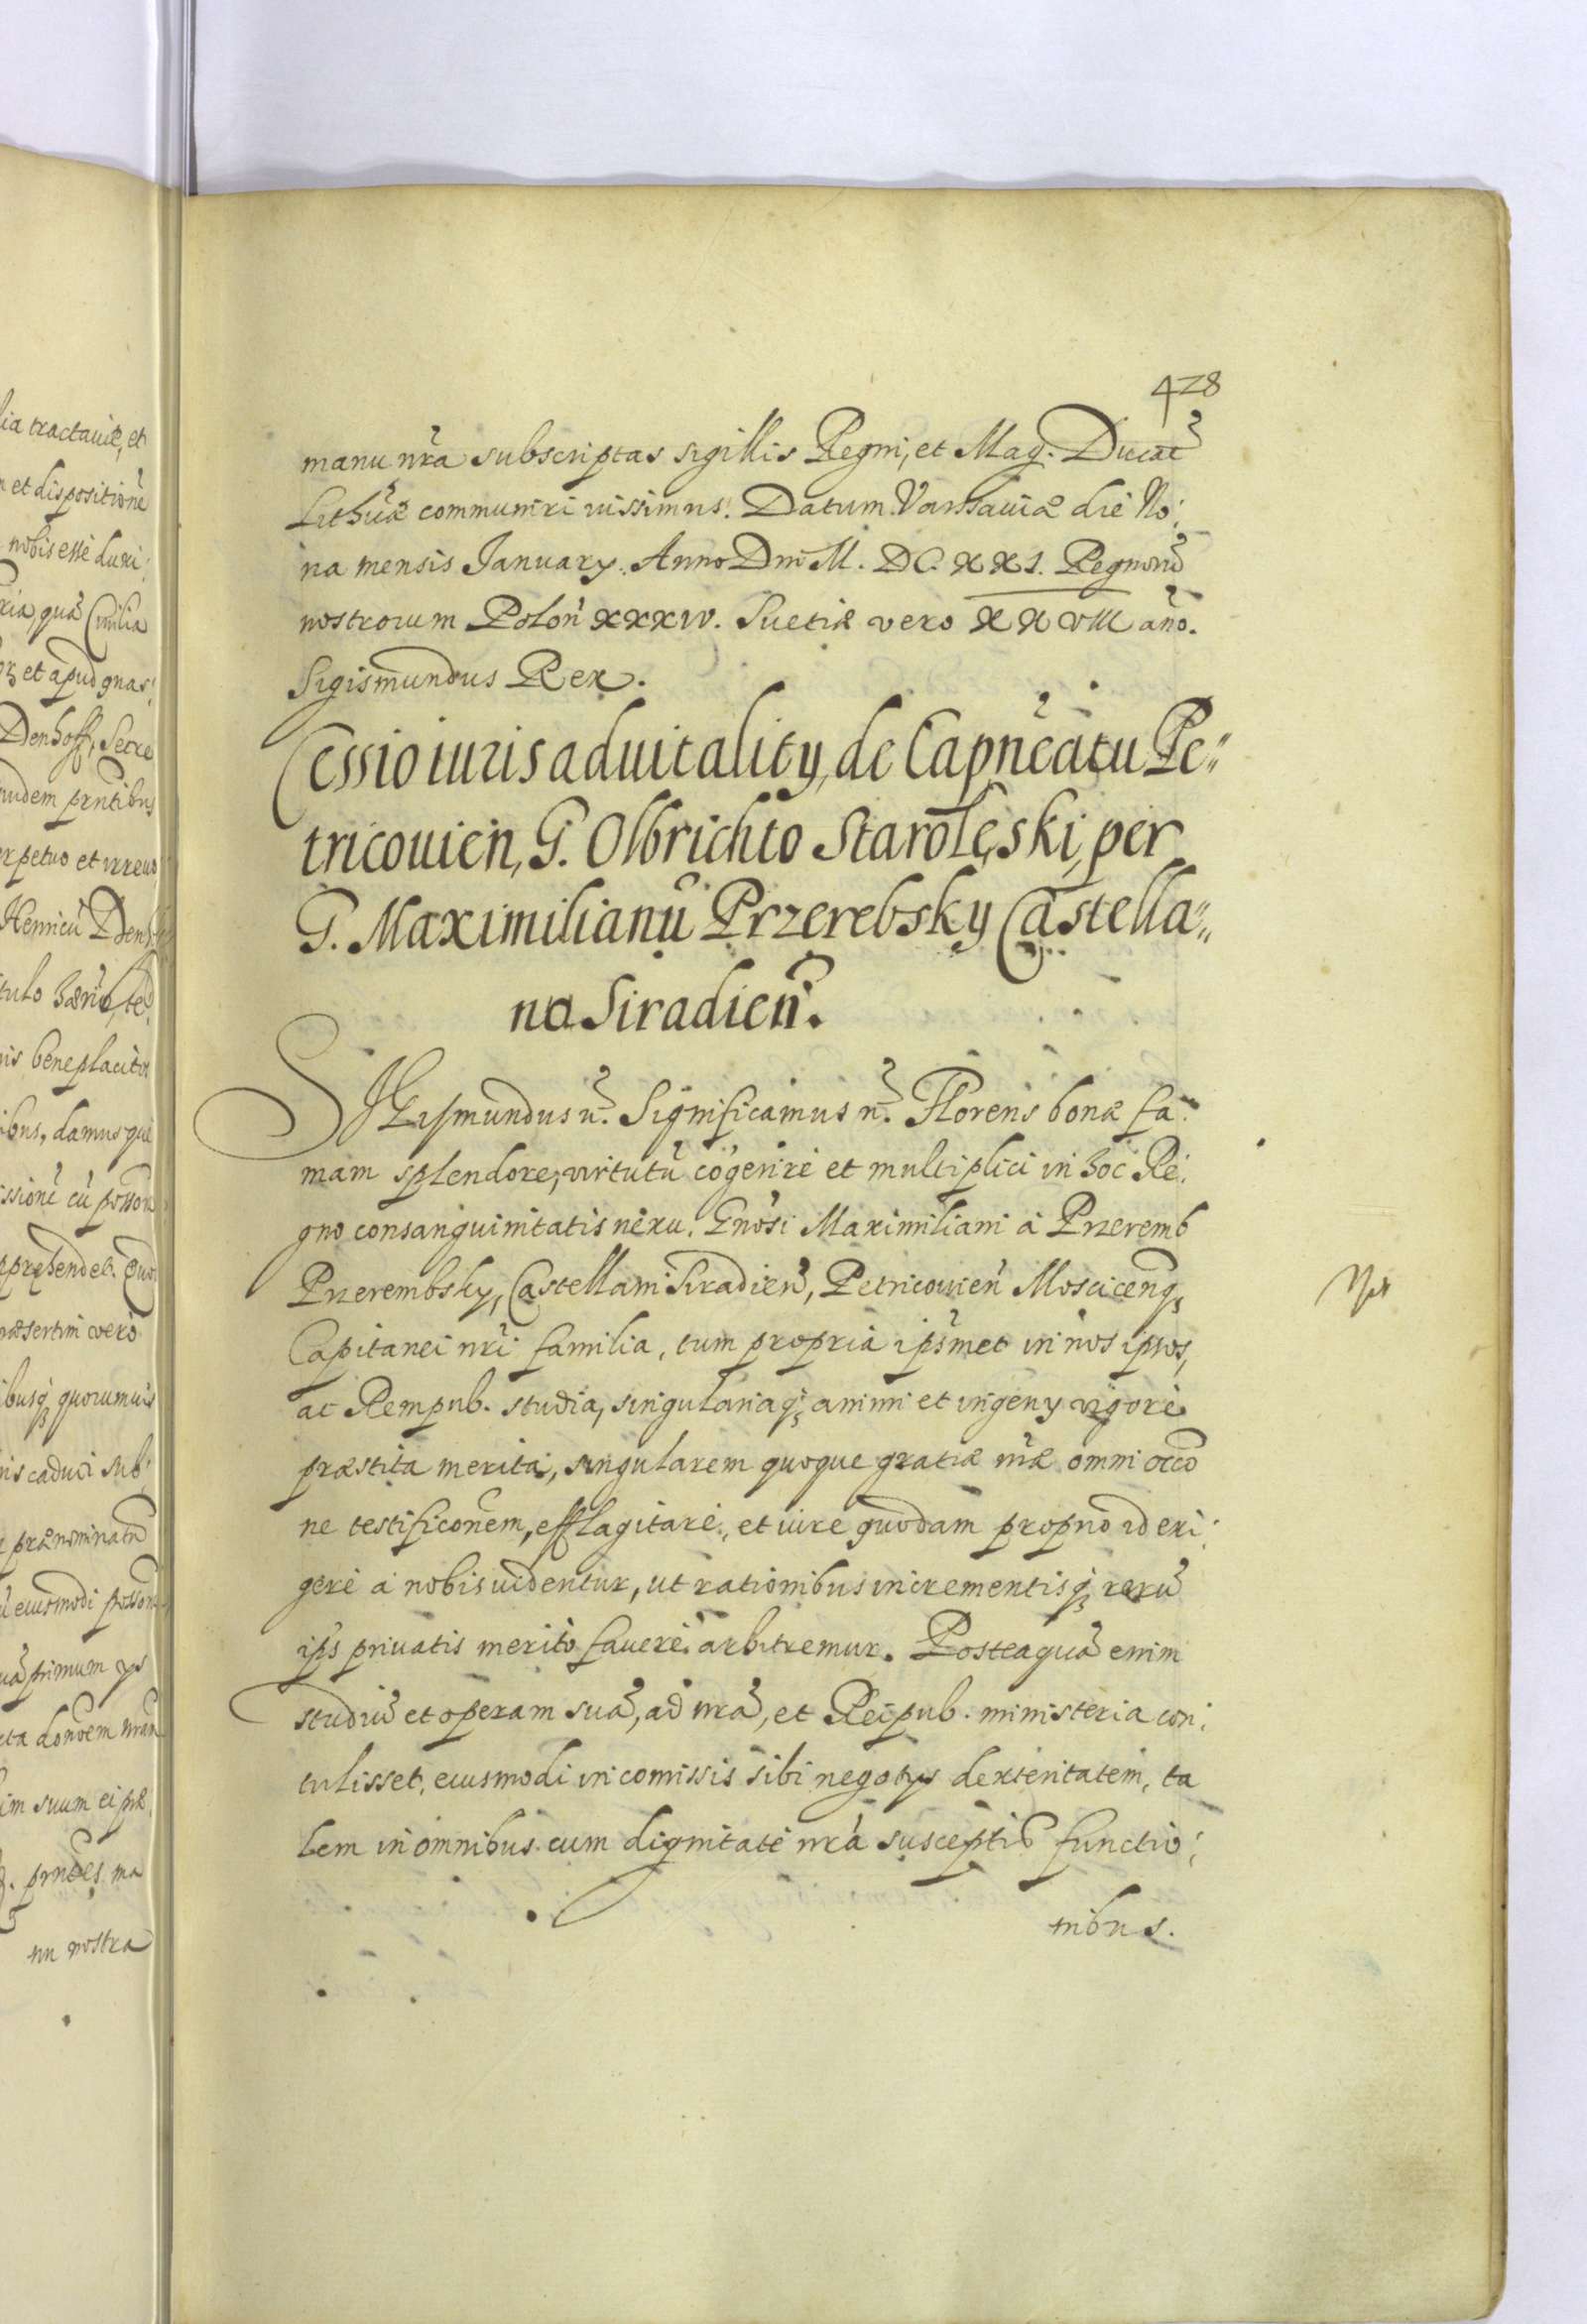 428
manu nr̃a subscriptas sigillis Regni, et Mag. Ducat̃
Lithũæ communiri iussimus. Datum Varsaviæ die No:
na mensis January. Anno Dni M. DC. XXI. Regnorũ
nostrorum Polon̄ XXXIV. Suetiæ vero XXVIII año.
Sigismundus Rex.
Cessio iuris aduitality, de Capñeatu Pe„
tricouien, G. Olbrichto Starolęski, per
G. Maximilianũ Przerebsky Castella„
no Siradieñ.
SIgismundus ñ. Significamus ñ. Florens bonæ fa:
mam splendore, virtutũ cõgerire et multiplici in hoc Re:
gno consanguinitatis nexu. Gnosi Maximiliani a Przeremb
Przerembsky, Castellani Siradieñ, Petricouieñ Mosciceñq;
Capitanei nr̃i familia, tum propria ipsmet in nos ipsos,
ac Rempub. studia, singulariaq; animi et ingeny vigore
præstita merita, singularem quoque gratiæ nr̃æ omni occõ
ne testificoñem, efflagitare, et iure quodam proprio id exi:
gere a nobis uidentur, ut rationibus incrementisq; rerũ
ips priuatis merito fauere arbitremur. Posteaquã enim
studiũ et operam suã, ad nr̃ã, et Reipub. ministeria con:
tulisset, eiusmodi in comissis sibi negotys dexteritatem, ta
lem in omnibus cum dignitate nr̃a susceptis functio:
nibus.
lia tractauit, et
et dispositionẽ
nobis esse duxi:
quã Civilia
et apud gnas:
Denhoff, Secre
prñtibus
rpetuo et irreuo
Henricũ Denh
tulo
nis beneplacito
ibus, damus que
issionẽ cũ posson
pprehendet. Quo
præsertim vero
ibusq; quorumuis
nis caduci sub:
prænominatũ
eiusmodi posson
uã primum ys
donoem nram
im suum ei præ
prñtes ma
nu nostra